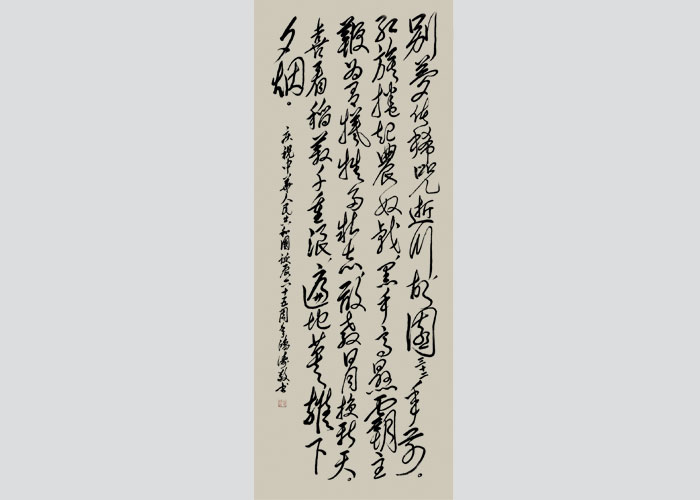 别梦依稀咒逝川，故园三十二年前。
红旗捲起農奴戟，黑手高懸霸主
鞭。为有犧牲多壮志，敢教日月换新天。
喜看稻菽千重浪，遍地英雄下
夕烟。
庆祝中华人民共和國诞辰六十五周年 涛敬书